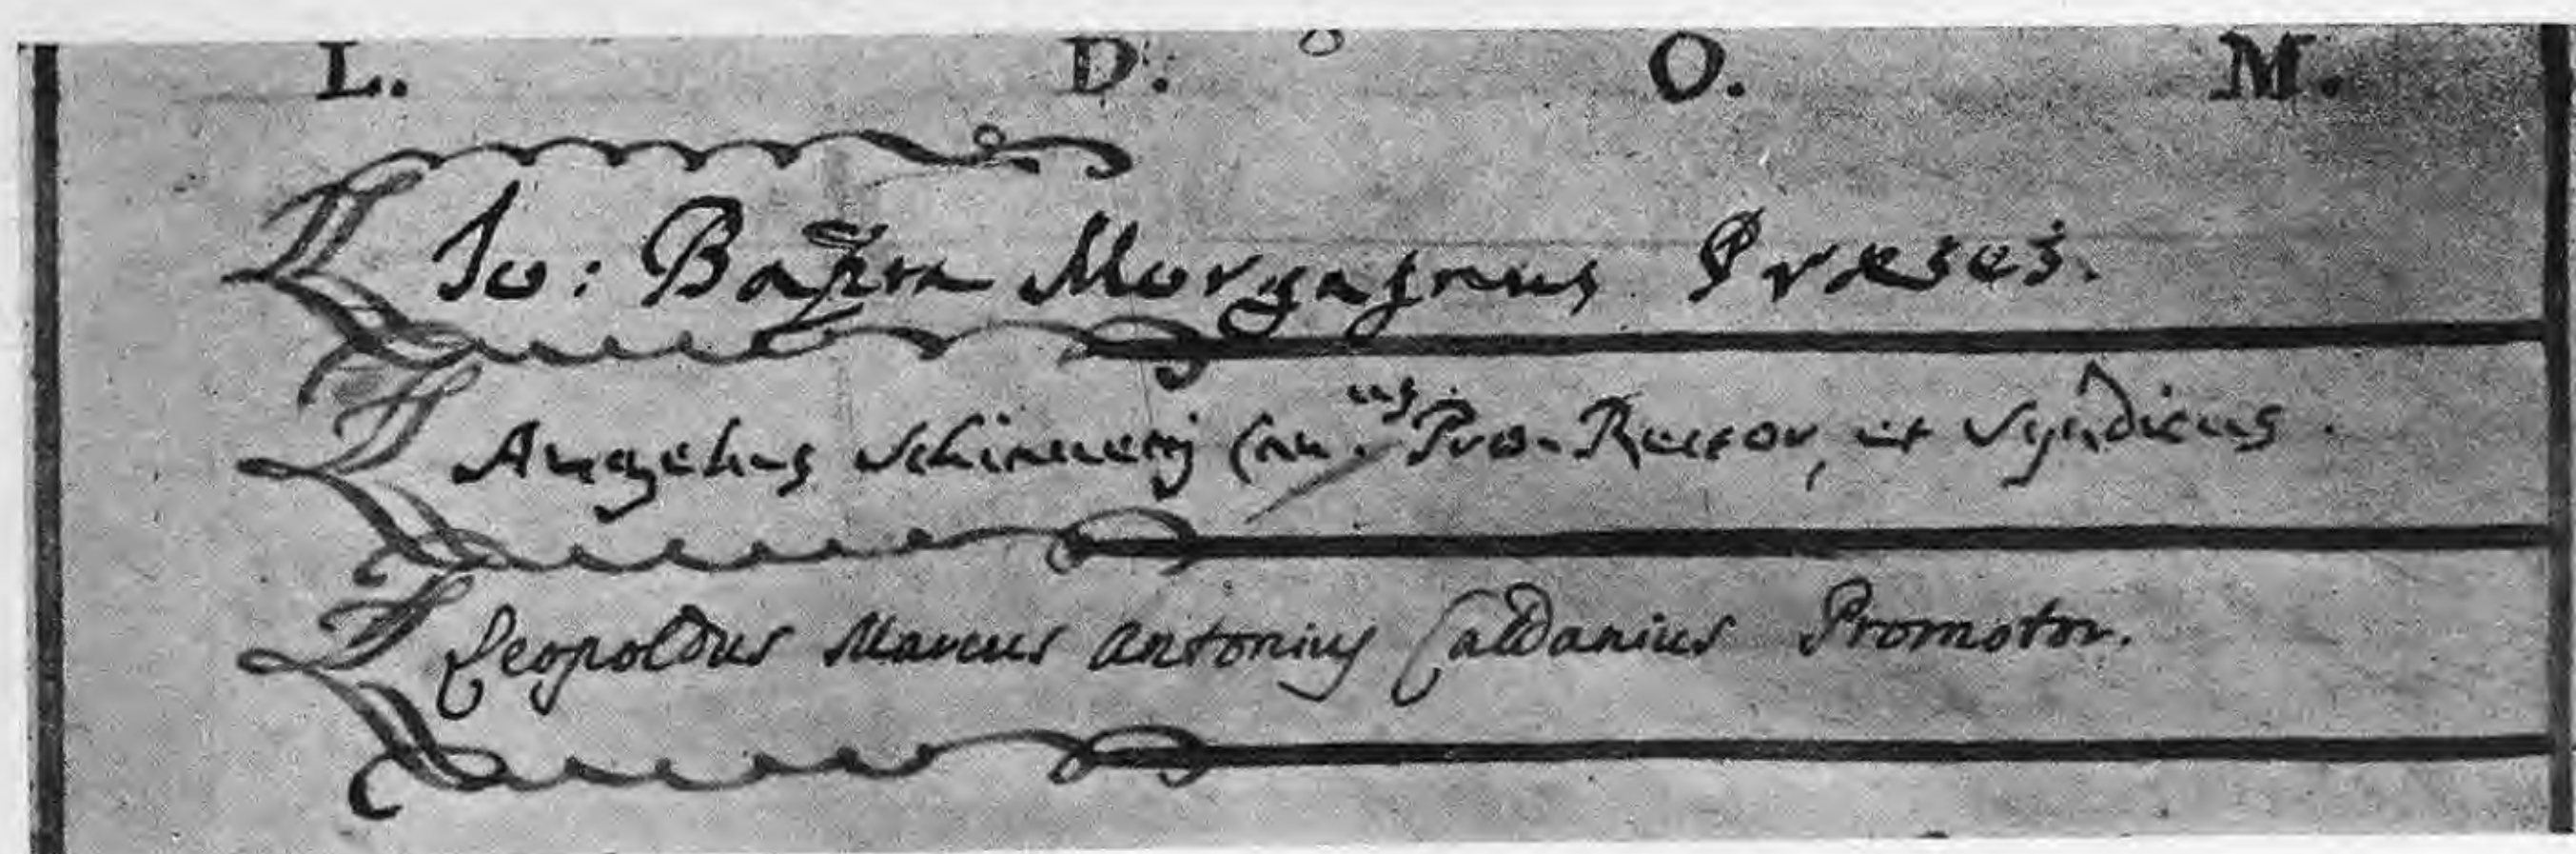 L. D. O. M.
Jo: Bapta Morgagnus Præses.
Angelus Schinnelj Pro-Rector, et Syndicus.
Leopoldus Marcus Antonius Caldanius Promotor.